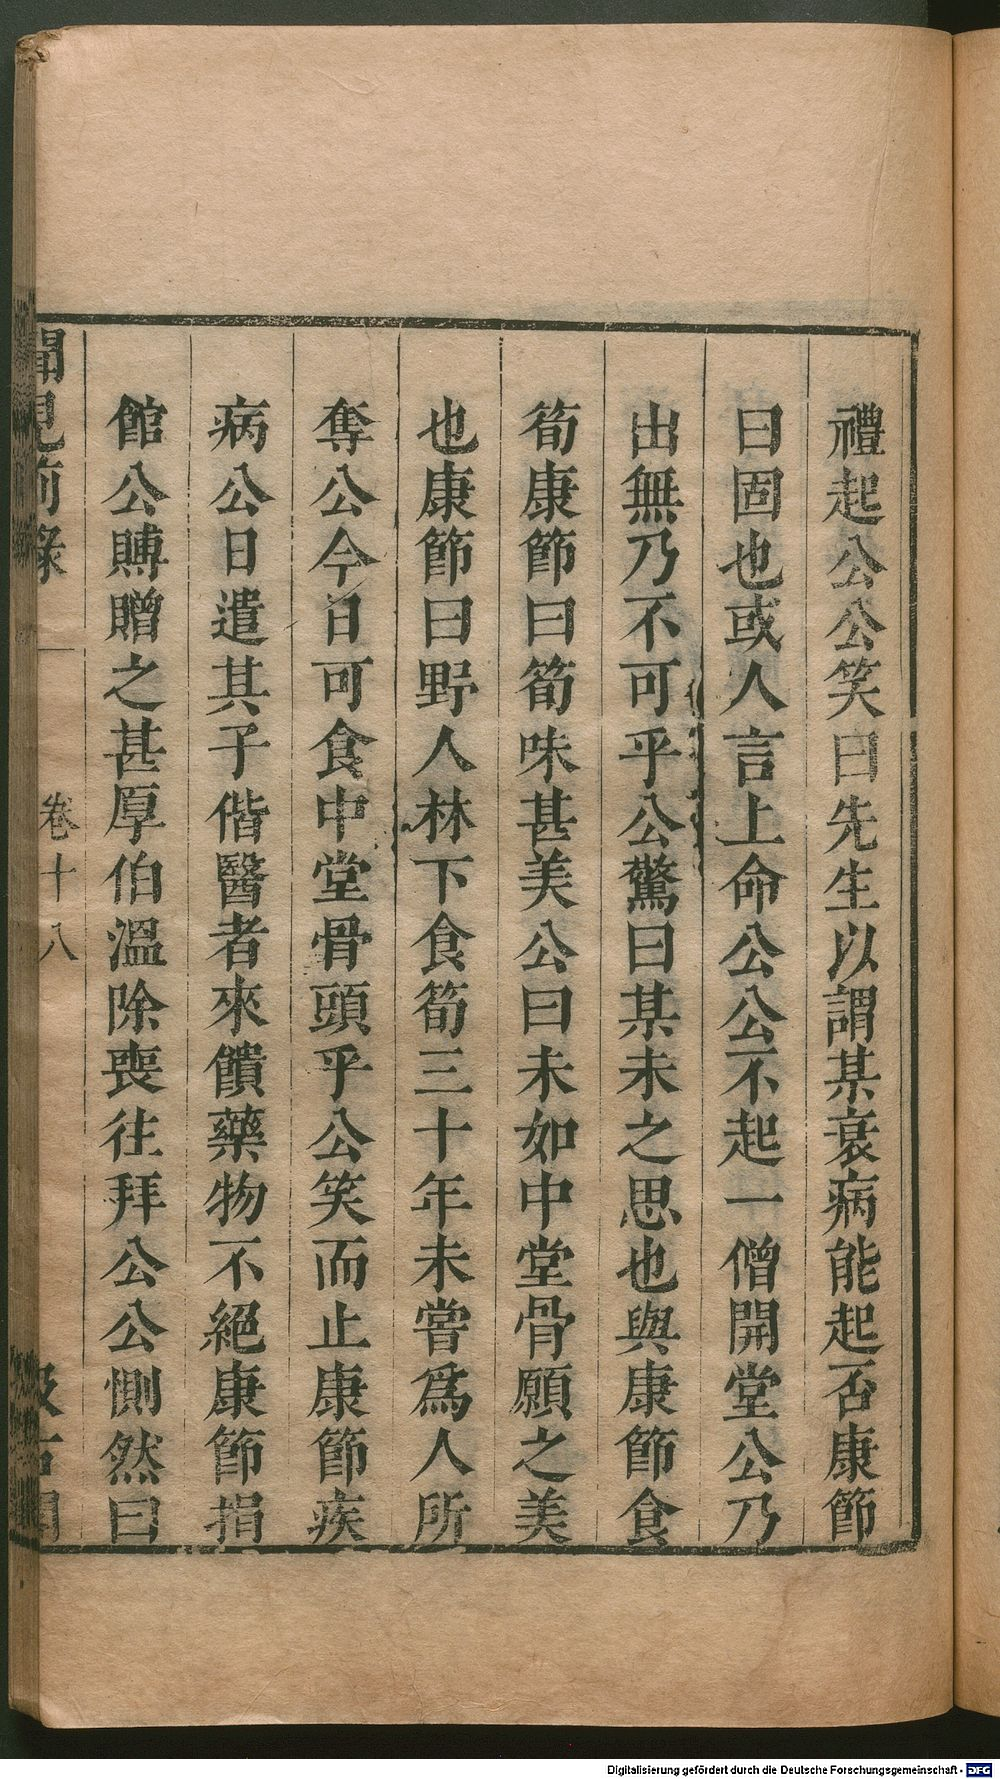 禮起公公笑曰先生以謂某衰病能起否康節
曰固也或人言上命公公不起一僧開堂公乃
出無乃不可乎公驚曰某未之思也與康節食
筍康節曰筍味甚美公曰未如中堂骨願之美
也康節曰野人林下食筍三十年未嘗爲人所
奪公今日可食中堂骨頭乎公笑而止康節疾
病公日遣其子偕醫者來饋藥物不絕康節捐
館公賻贈之甚厚伯溫除喪往拜公公惻然曰
聞見前錄
卷十八
汲古閣
Digitalisierung gefördert durch die Deutsche Forschungsgemeinschaft - DFG